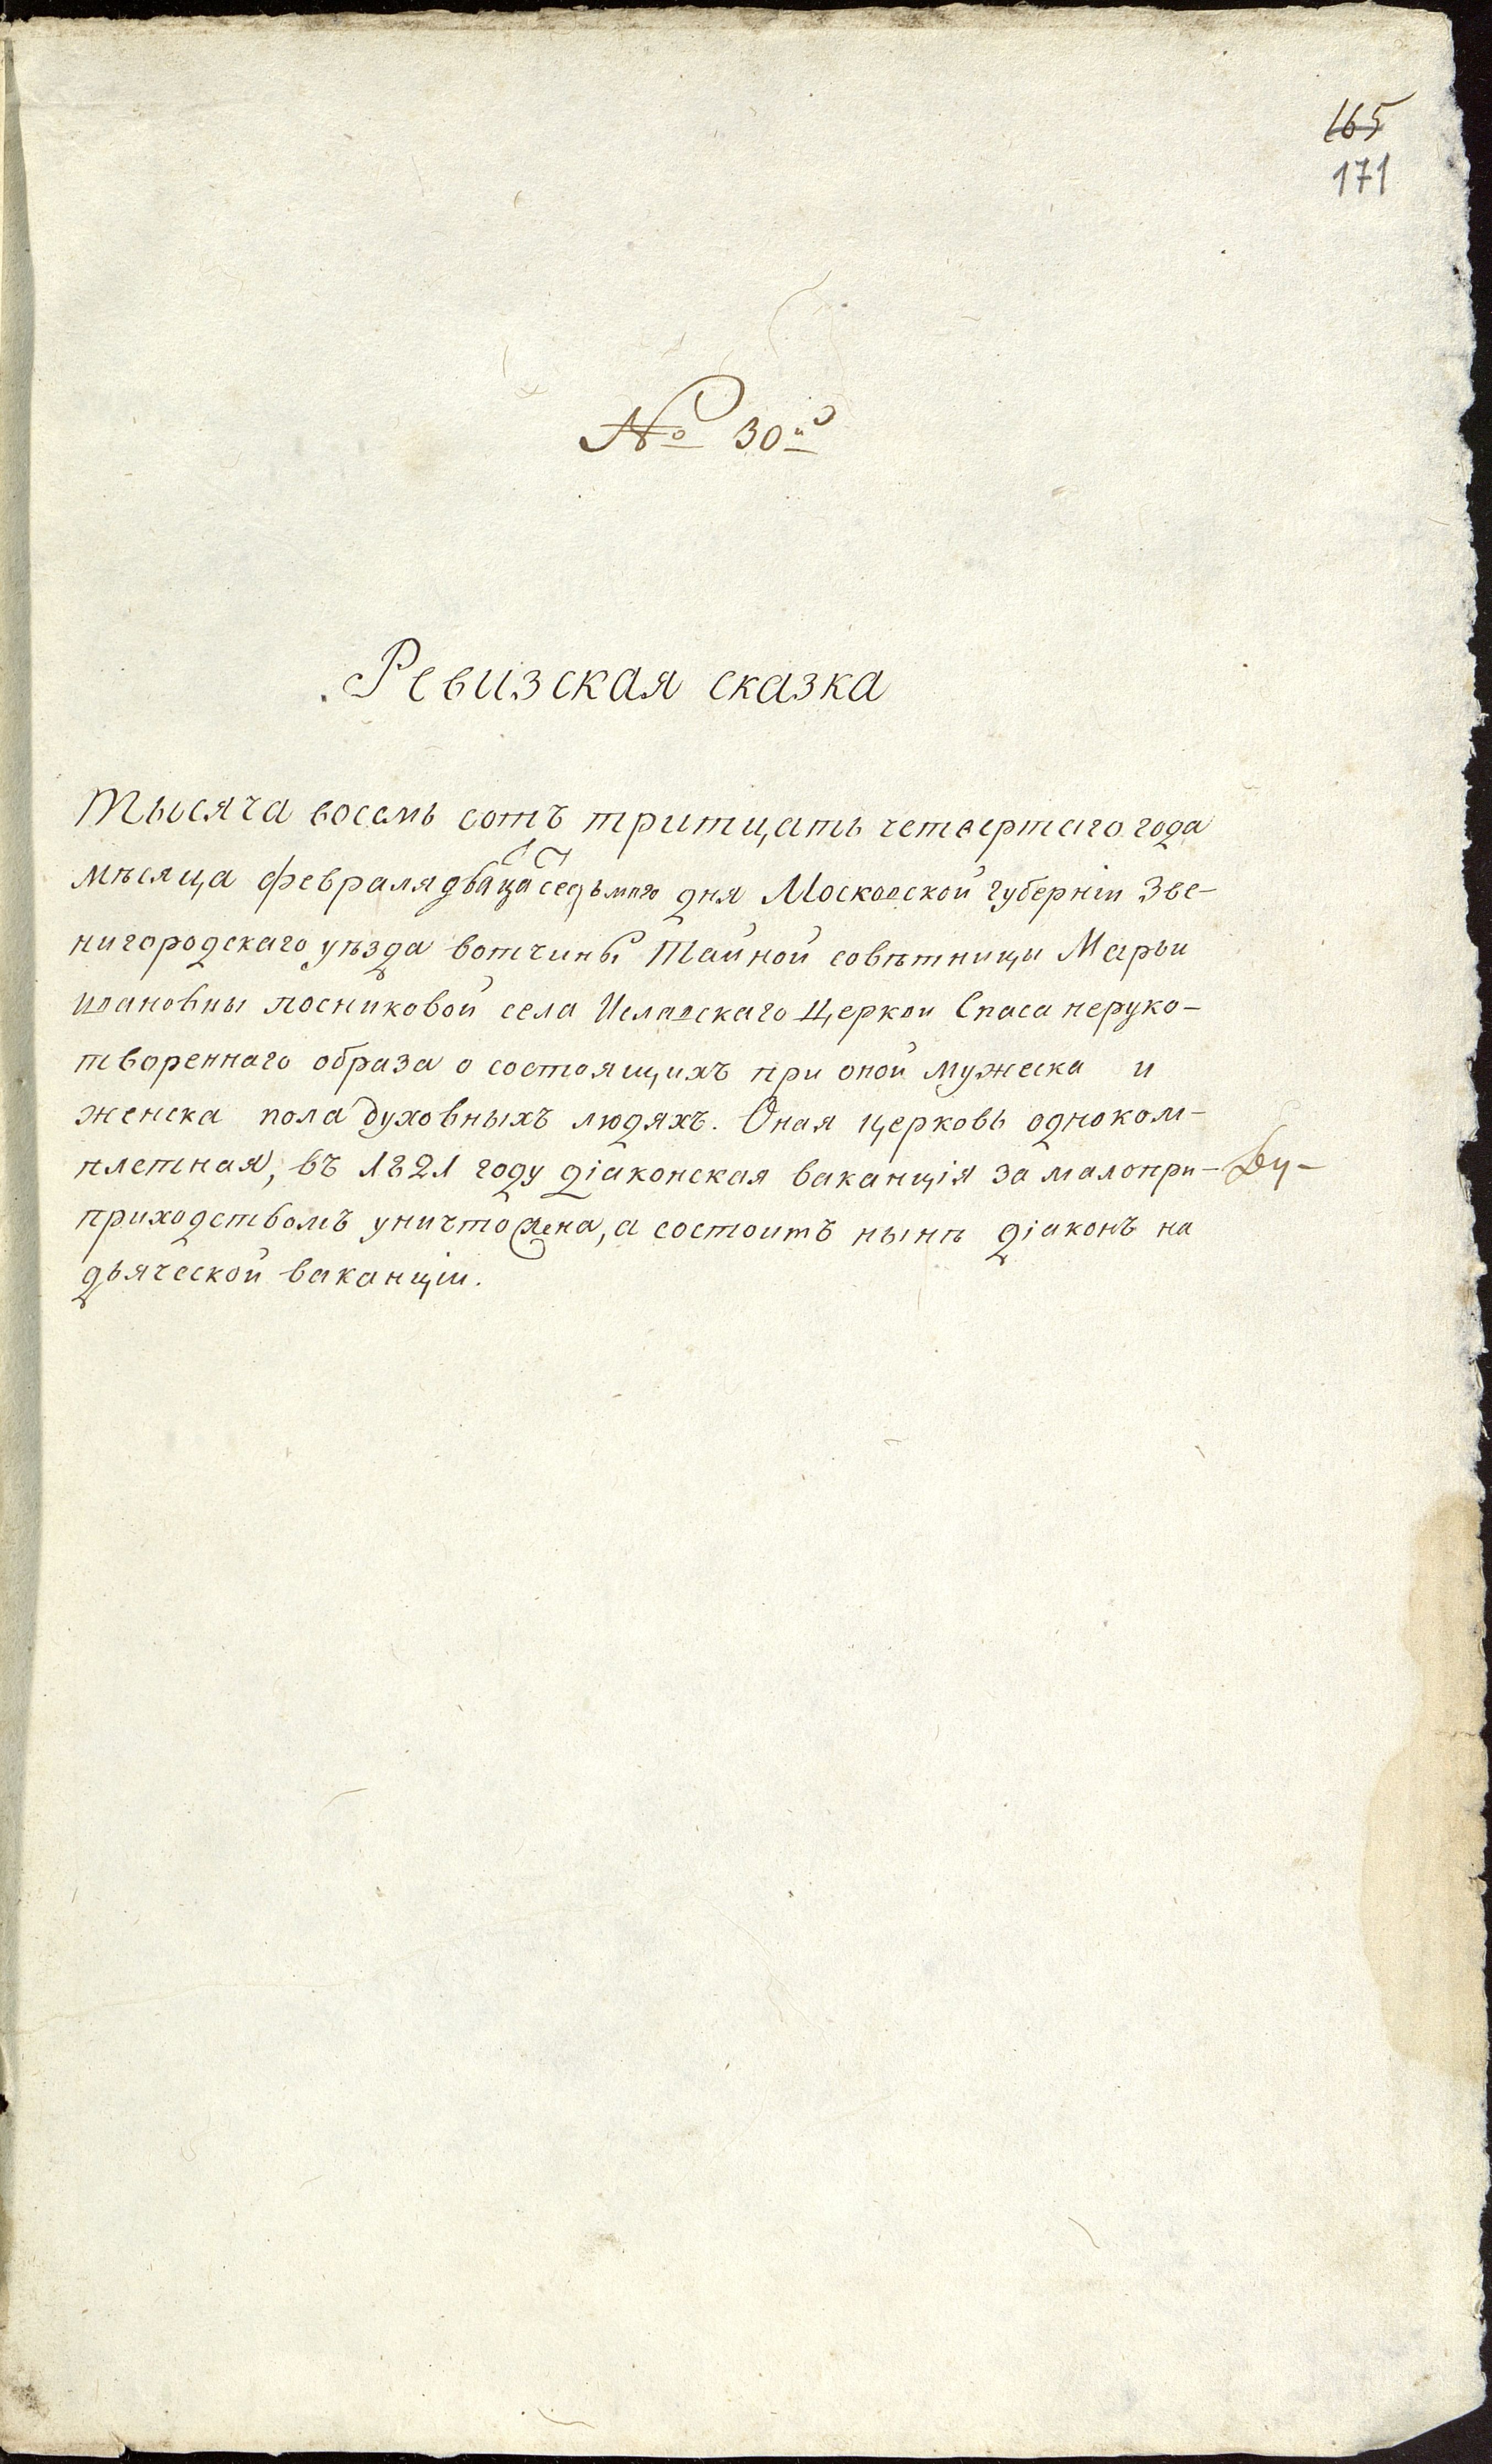 165
171
№ 30й
Ревизская сказка
Тысяча восемь сотъ тритцать четвертаго года
мѣсяца февраля дватцать седьмаго дня Московской губерніи Зве-
нигородскаго уѣзда вотчины Тайной совѣтницы Марьи
Ивановны Посниковой села Иславскаго Церкви Спаса неруко-
твореннаго образа о состоящихъ при оной мужеска и
женска пола духовныхъ людяхъ. Оная церковь одноком-
плетная, въ 1821 году діаконская ваканція за малопри-
приходствомъ уничтожена, а состоитъ нынѣ діаконъ на
дьяческой ваканціи.